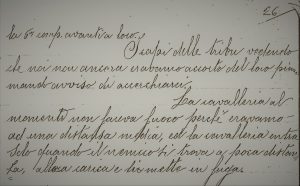 26
la 6ª comp. avanti a loro.
I capi delle tribù vedendo
che noi non ancora eravamo accorto del loro pia
mando avviso di accerchiarci.
La cavalleria al
momento non faceva fuoco perchè eravamo
ad una distanza media, e la cavalleria entra
solo quando il nemico si trova a poca distan
za, allora carica e si mette in fuga.